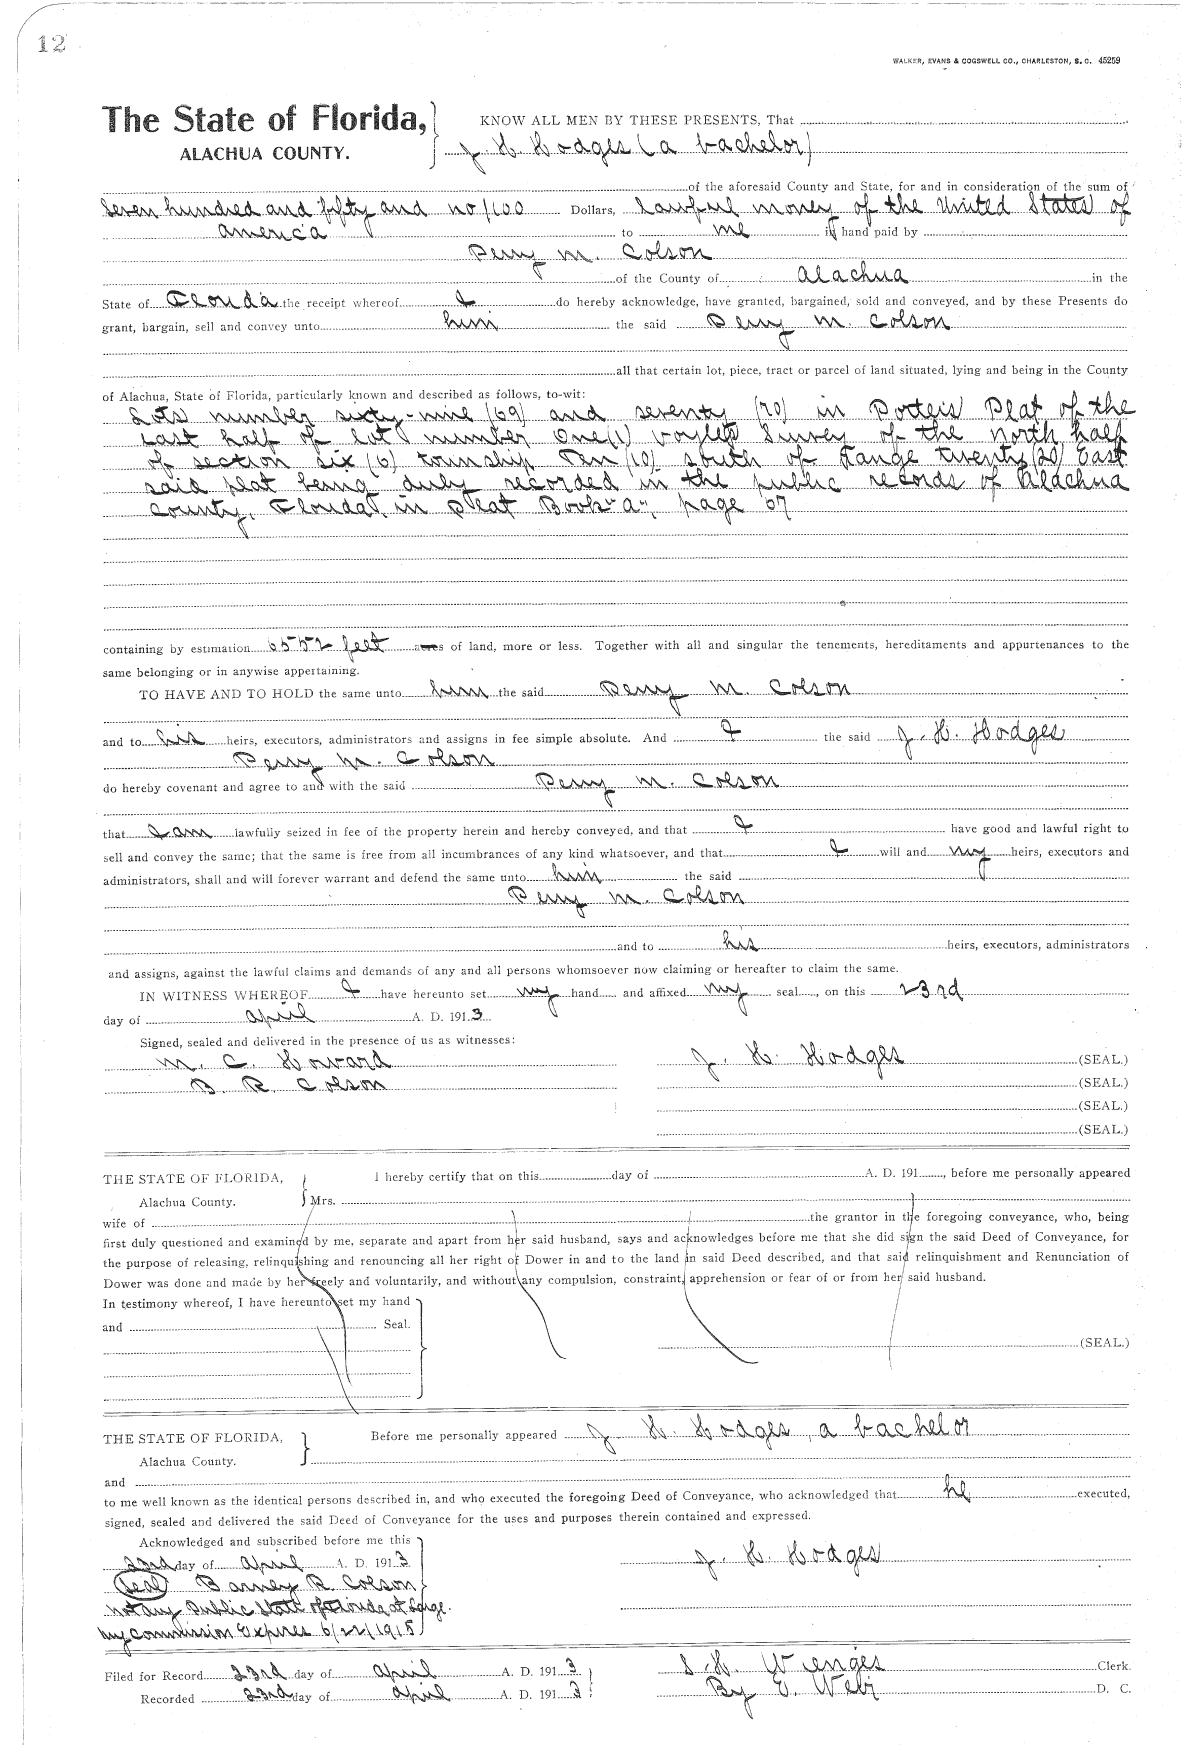 12
WALKER, EVANS & COGSWELL CO., CHARLESTON, S. C. 45259
The State of Florida,
ALACHUA COUNTY.
KNOW ALL MEN BY THESE PRESENTS, That
J. H. Hodges (a bachelor)
of the aforesaid County and State, for and in consideration of the sum of
Seven hundred and fifty and no/100 Dollars, Lawful money of the United States of
america to me in hand paid by
Perry M. Colson
of the County of Alachua in the
State of Florida the receipt whereof I do hereby acknowledge, have granted, bargained, sold and conveyed, and by these Presents do
grant, bargain, sell and convey unto him the said Perry M. Colson
all that certain lot, piece, tract or parcel of land situated, lying and being in the County
of Alachua, State of Florida, particularly known and described as follows, to-wit:
Lots number sixty-nine (69) and seventy (70) in Porters Plat of the
East half of lot number One (1) Survey of the north half
of section six (6) township Ten (10) south of Range twenty (20) East
said plat being duly recorded in the public records of Alachua
County, Florida, in Plat Book "A", page 67
containing by estimation 6552 feet acres of land, more or less. Together with all and singular the tenements, hereditaments and appurtenances to the
same belonging or in anywise appertaining.
TO HAVE AND TO HOLD the same unto him the said Perry M. Colson
and to his heirs, executors, administrators and assigns in fee simple absolute. And I the said J. H. Hodges
Perry M. Colson
do hereby covenant and agree to and with the said Perry M. Colson
that I am lawfully seized in fee of the property herein and hereby conveyed, and that I have good and lawful right to
sell and convey the same; that the same is free from all incumbrances of any kind whatsoever, and that I will and my heirs, executors and
administrators, shall and will forever warrant and defend the same unto him the said
Perry M. Colson
and to his heirs, executors, administrators
and assigns, against the lawful claims and demands of any and all persons whomsoever now claiming or hereafter to claim the same.
IN WITNESS WHEREOF I have hereunto set my hand and affixed my seal, on this 23rd
day of April A. D. 1913.
Signed, sealed and delivered in the presence of us as witnesses:
M. C. Howard J. H. Hodges (SEAL.)
B. R. Colson (SEAL.)
(SEAL.)
(SEAL.)
THE STATE OF FLORIDA, I hereby certify that on this day of A. D. 191, before me personally appeared
Alachua County. Mrs.
wife of the grantor in the foregoing conveyance, who, being
first duly questioned and examined by me, separate and apart from her said husband, says and acknowledges before me that she did sign the said Deed of Conveyance, for
the purpose of releasing, relinquishing and renouncing all her right of Dower in and to the land in said Deed described, and that said relinquishment and Renunciation of
Dower was done and made by her freely and voluntarily, and without any compulsion, constraint, apprehension or fear of or from her said husband.
In testimony whereof, I have hereunto set my hand
and Seal.
(SEAL.)
THE STATE OF FLORIDA, Before me personally appeared J. H. Hodges, a bachelor
Alachua County.
and
to me well known as the identical persons described in, and who executed the foregoing Deed of Conveyance, who acknowledged that he executed,
signed, sealed and delivered the said Deed of Conveyance for the uses and purposes therein contained and expressed.
Acknowledged and subscribed before me this
23rd day of April A. D. 1913. J. H. Hodges
Seal Barney R. Colson
Notary Public State of Florida at Large.
My Commission Expires 6/22/1915
Filed for Record 23rd day of April A. D. 1913 S. H. Wienges Clerk.
Recorded 23rd day of April A. D. 1913 By E. Weir D. C.